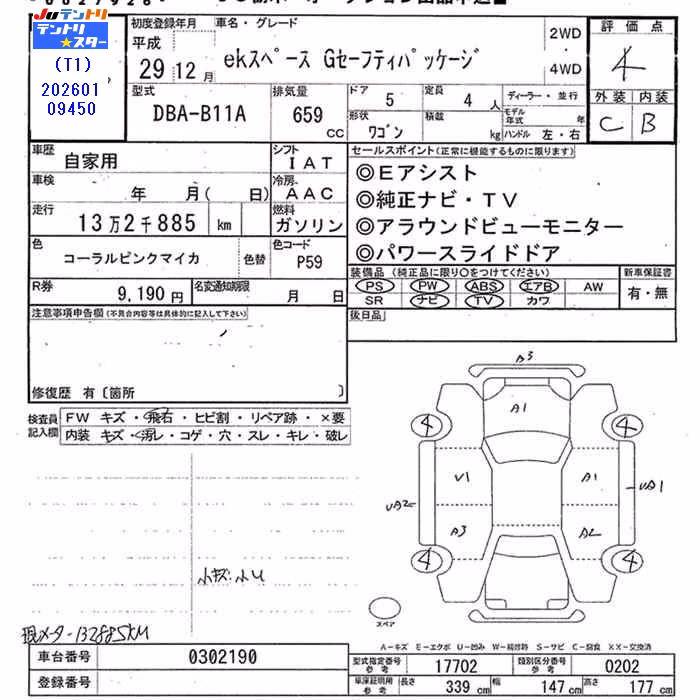 JU テントリ
テントリ★スター
(T1)
202601
09450
初度登録年月 車名・グレード
平成
29 12月 ekスペース Gセーフティパッケージ 2WD・4WD
評価点
4
外装 内装
C B
型式 排気量 ドア 定員 ディーラー・並行
DBA-B11A 659 CC 5 4人
形状 積載 モデル年式 年
ワゴン kg ハンドル 左・右
車歴 自家用 シフト IAT
車検 年 月( 日) 冷房 AAC
走行 13万2千885 km 燃料 ガソリン
色 コーラルピンクマイカ 色替 色コード P59
R券 9,190円 名変通知期限 月 日
セールスポイント(正常に機能するものに限ります)
◎Eアシスト
◎純正ナビ・TV
◎アラウンドビューモニター
◎パワースライドドア
装備品(純正品に限り○をつけてください) 新車保証書
PS PW ABS エアB AW 有・無
SR ナビ TV カワ
後日品
注意事項申告欄(不具合内容等は具体的に記入して下さい)
修復歴 有〔箇所 〕
検査員記入欄 FW キズ・飛石・ヒビ割・リペア跡・×要
内装 キズ・汚レ・コゲ・穴・スレ・キレ・破レ
A3
A1
4 4
V1 A1
UA2 UA1
A3 A2
4 4
スペア
小キズ・小U
現メーター132885KM
A-キズ E-エクボ U-凹み W-補修跡 S-サビ C-腐食 XX-交換済
車台番号 0302190
登録番号
型式指定番号 参考 17702 類別区分番号 参考 0202
車庫証明用 参考 長さ 339cm 幅 147cm 高さ 177cm